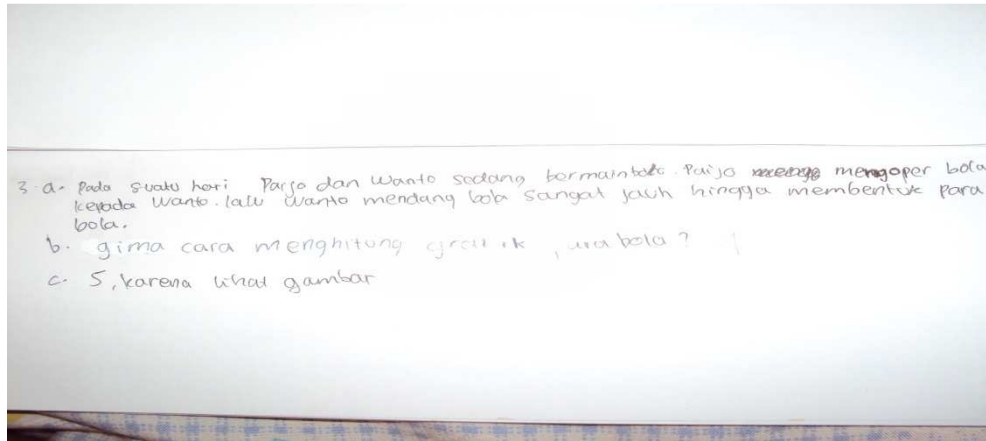 3. a. Pada suatu hari Parjo dan Wanto sedang bermain bola. Paijo mengoper bola
kepada Wanto. lalu Wanto mendang bola sangat jauh hingga membentuk para
bola.
b. gima cara menghitung bola?
c. 5, karena lihat gambar